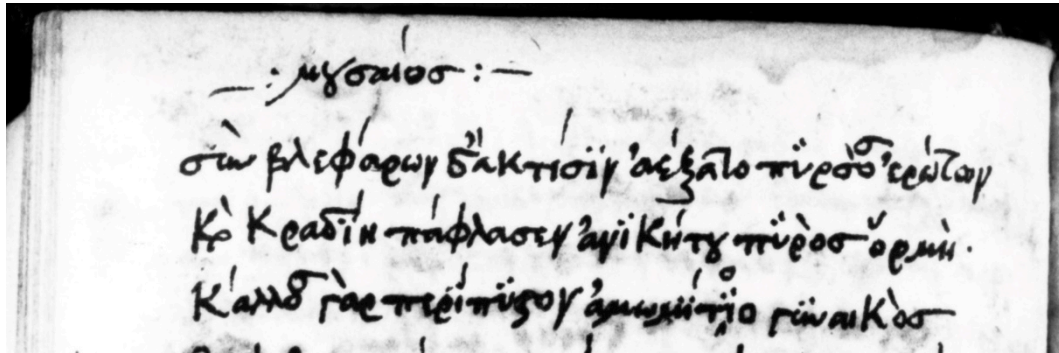 — : μουσαίος : —
σὺν βλεφάρων δ' ἀκτίσιν ἀέξατο πῦρσὸς ἐρώτων
καὶ κραδίη πάφλασεν ἀνικήτου πῦρὸς ὁρμῆ.
κάλλος γὰρ περίπυστον ἀμωμήτοιο γυναικὸς